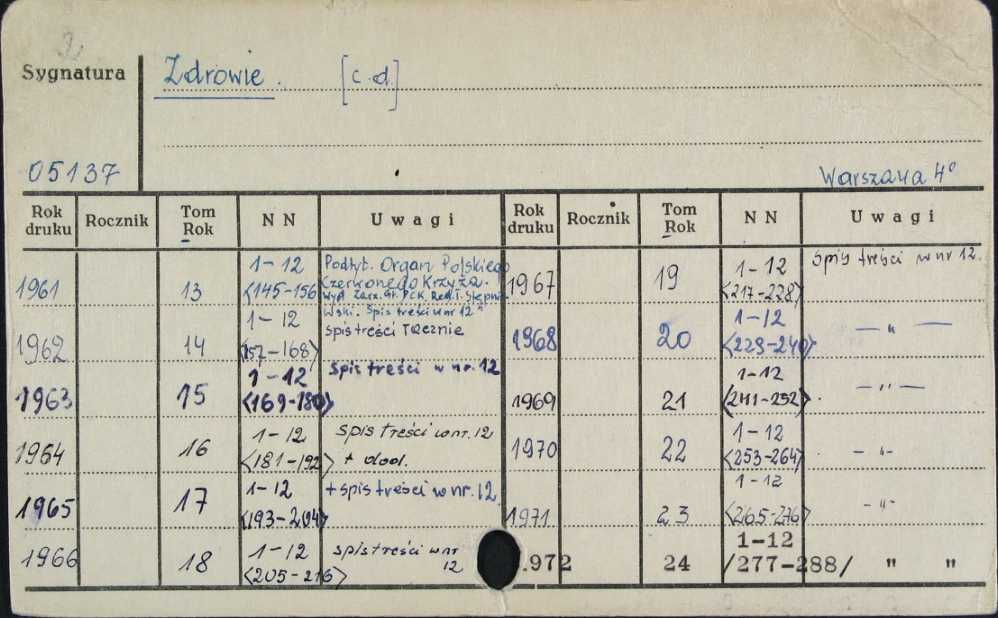 Sygnatura Zdrowie. [c.d.]
05137 Warszawa 4°
Rok druku Rocznik Tom Rok NN Uwagi Rok druku Rocznik Tom Rok NN Uwagi
1961 13 1-12 <145-156 Podtyt. Organ Polskiego
Czerwonego Krzyża.
Wyd. Zarz. Gł. PCK. Red. I. Stępniewski. Spis treści w nr 12
1962 14 1-12 <157-168> spis treści rocznie
1963 15 1-12 <169-180> spis treści w nr. 12
1964 16 1-12 <181-192> spis treści w nr. 12
+ dod.
1965 17 1-12 <193-204> + spis treści w nr. 12
1966 18 1-12 <205-216> spis treści w nr
12
1967 19 1-12 <217-228> spis treści w nr 12.
1968 20 1-12 <229-240> — " —
1969 21 1-12 <241-252> — " —
1970 22 1-12 <253-264> - " -
1971 23 1-12 <265-276> - " -
1972 24 1-12 /277-288/ " "